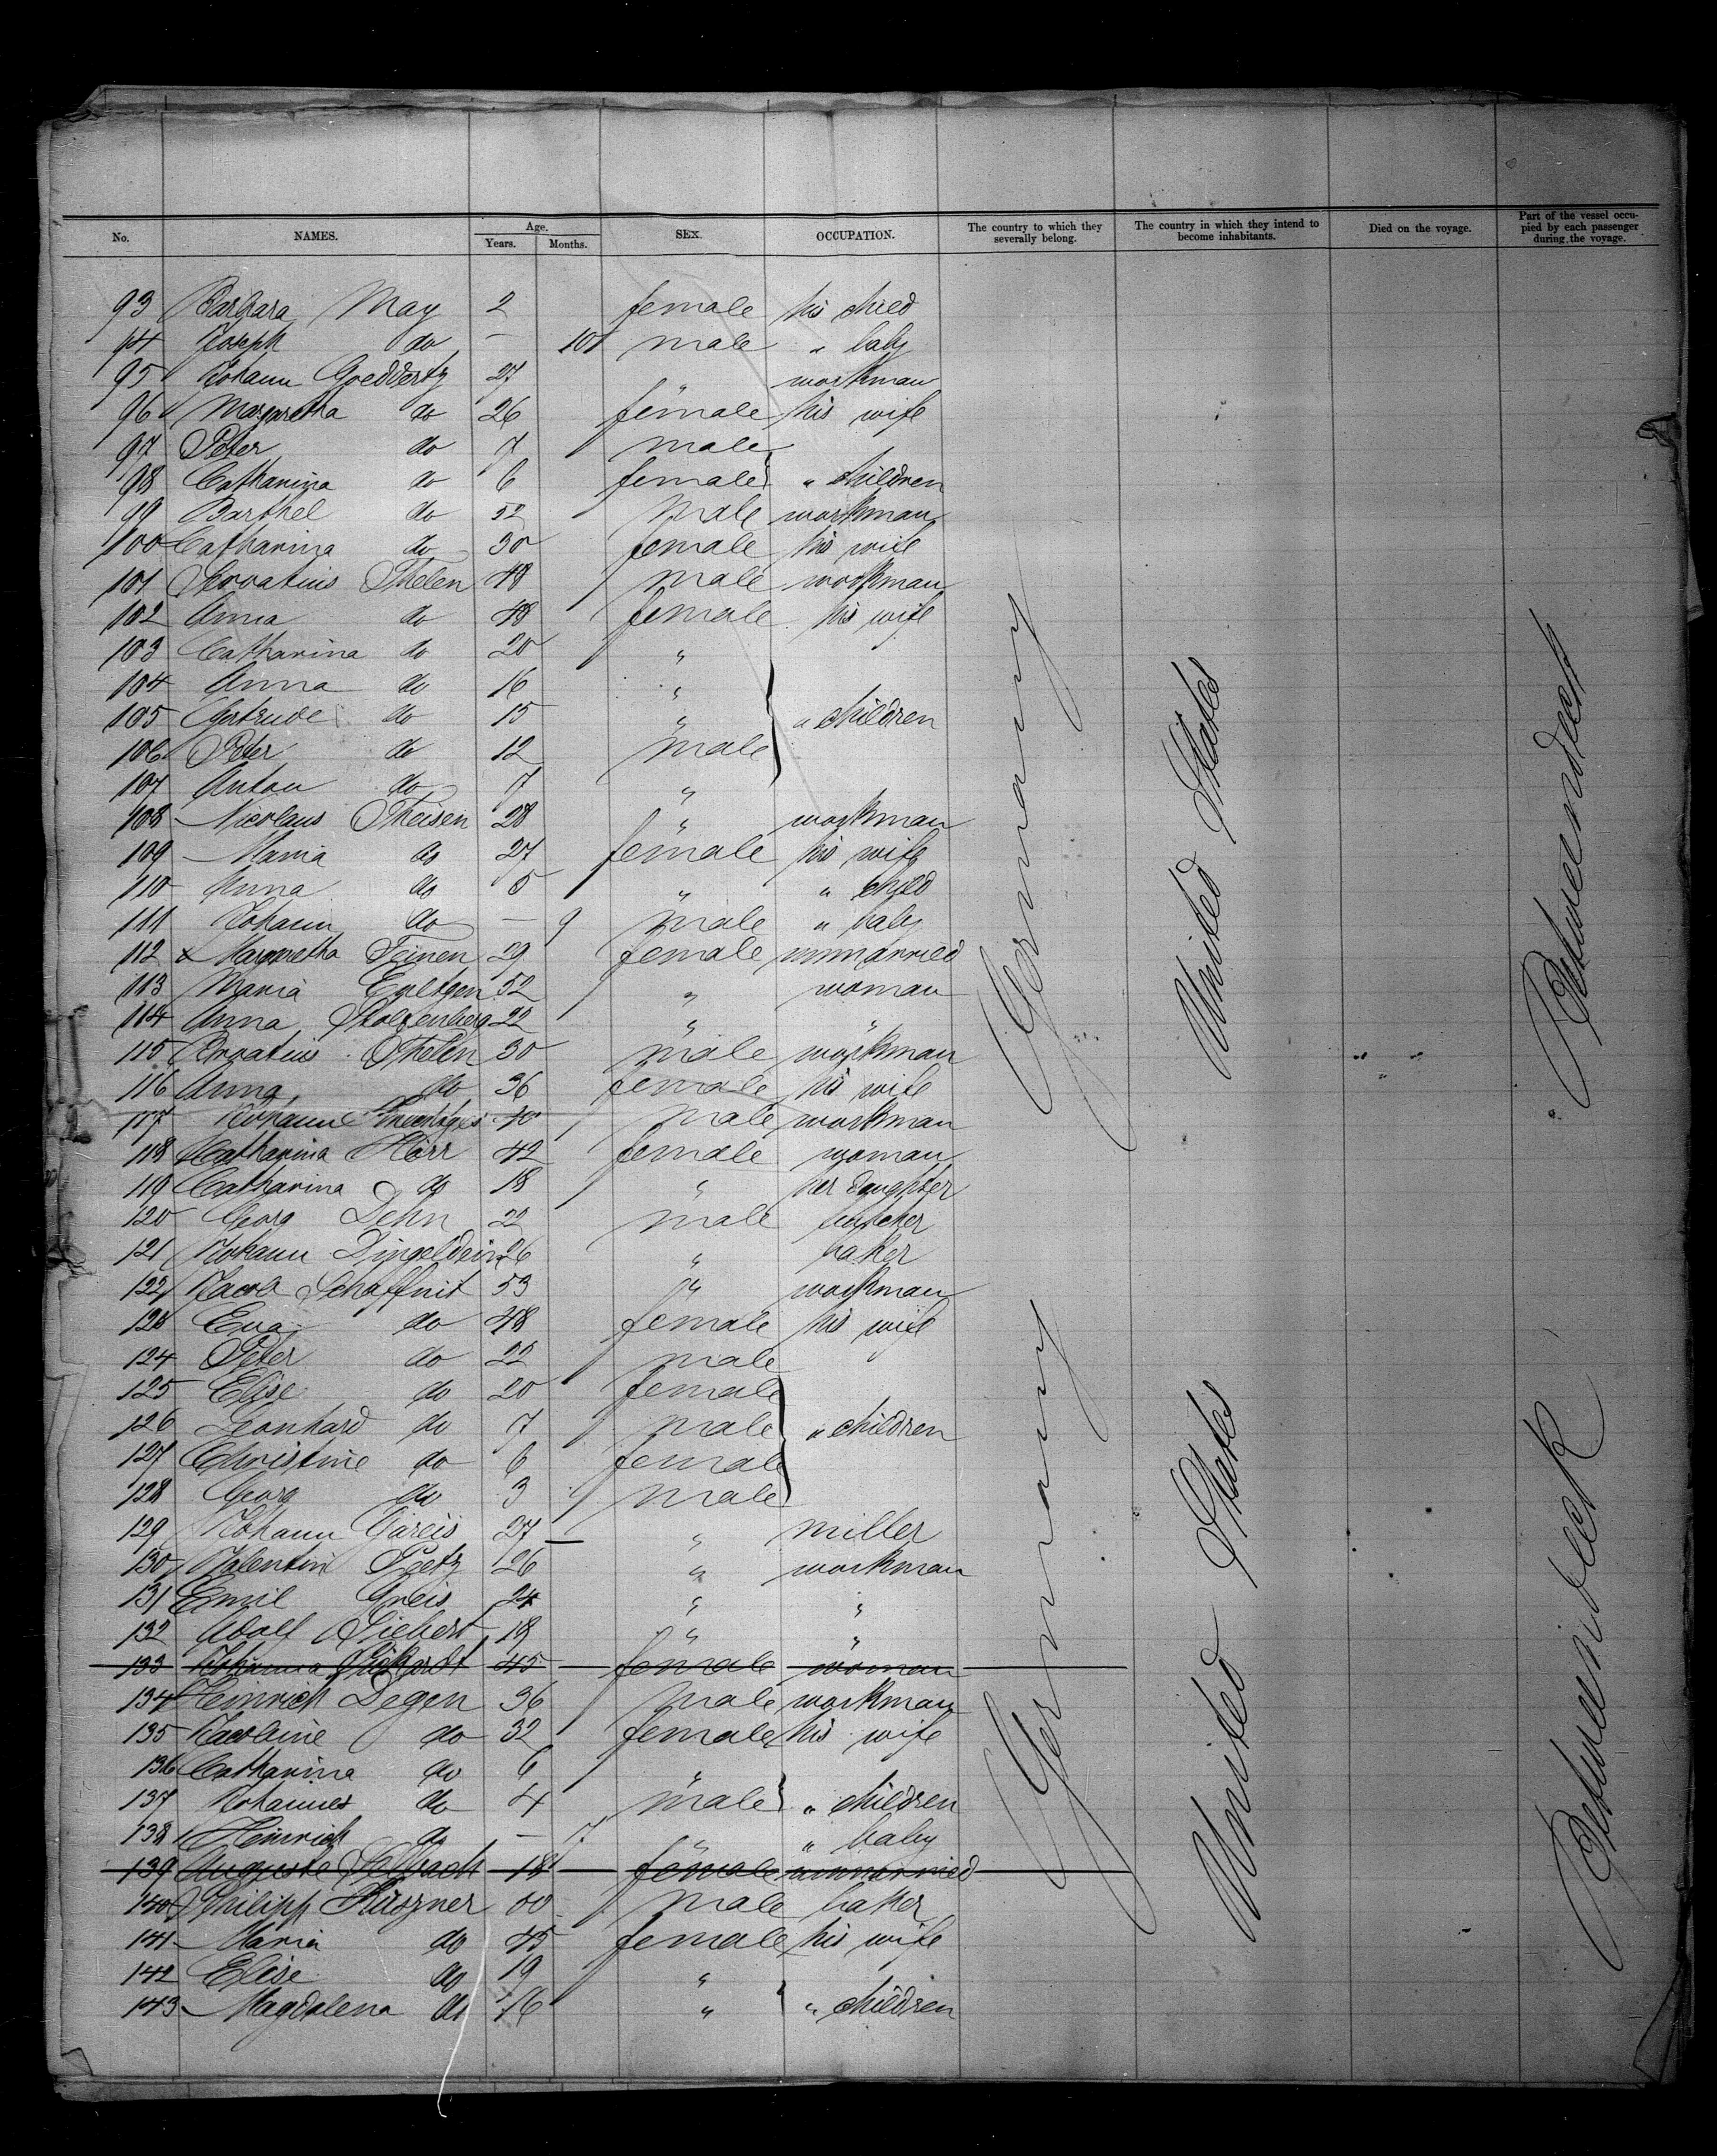 No. NAMES. Age. Years. Months. SEX. OCCUPATION. The country to which they severally belong. The country in which they intend to become inhabitants. Died on the voyage. Part of the vessel occupied by each passenger during the voyage.
93 Barbara May 2 female his child
94 Joseph do — 10 male " baby
95 Johann Goeddertz 27 " workman
96 Margaretha do 26 female his wife
97 Peter do 7 male
98 Catharina do 6 female " children
99 Barthel do 52 male workman
100 Catharina do 30 female his wife
101 Servatius Thelen 48 male workman
102 Anna do 48 female his wife
103 Catharina do 20 "
104 Anna do 16 "
105 Gertrude do 15 " " children
106 Peter do 12 male
107 Anton do 7 "
108 Nicolaus Theisen 28 " workman
109 Maria do 27 female his wife
110 Anna do 5 " " child
111 Johann do — 9 male " baby
112 x Margaretha Feinen 29 female unmarried
113 Maria 52 " woman
114 Anna Stolzenberg 22 " "
115 Servatius Thelen 30 male workman
116 Anna do 36 female his wife
117 Johann 40 male workman
118 Catharina Hörr 42 female woman
119 Catharina do 18 " her daughter
120 Georg Dehn 22 male butcher
121 Johann Dingeldein 26 " baker
122 Jacob Schaffnit 53 " workman
123 Eva do 48 female his wife
124 Peter do 22 male
125 Elise do 20 female
126 Leonhard do 7 male " children
127 Christine do 6 female
128 Georg do 3 male
129 Johann Gareis 27 " miller
130 Valentin 26 " workman
131 Emil Greis 24 " "
132 Adolf Siebert 18 " "
133 Johanna 45 female woman
134 Heinrich Degen 36 male workman
135 Karoline do 32 female his wife
136 Catharina do 6 "
137 Johannes do 4 male " children
138 Heinrich do — 7 " " baby
139 Auguste 18 female unmarried
140 Philipp male baker
141 Maria do 45 female his wife
142 Elise do 19 "
143 Magdalena do 16 " " children
Germany
United States
Betweendeck
Germany
United States
Betweendeck